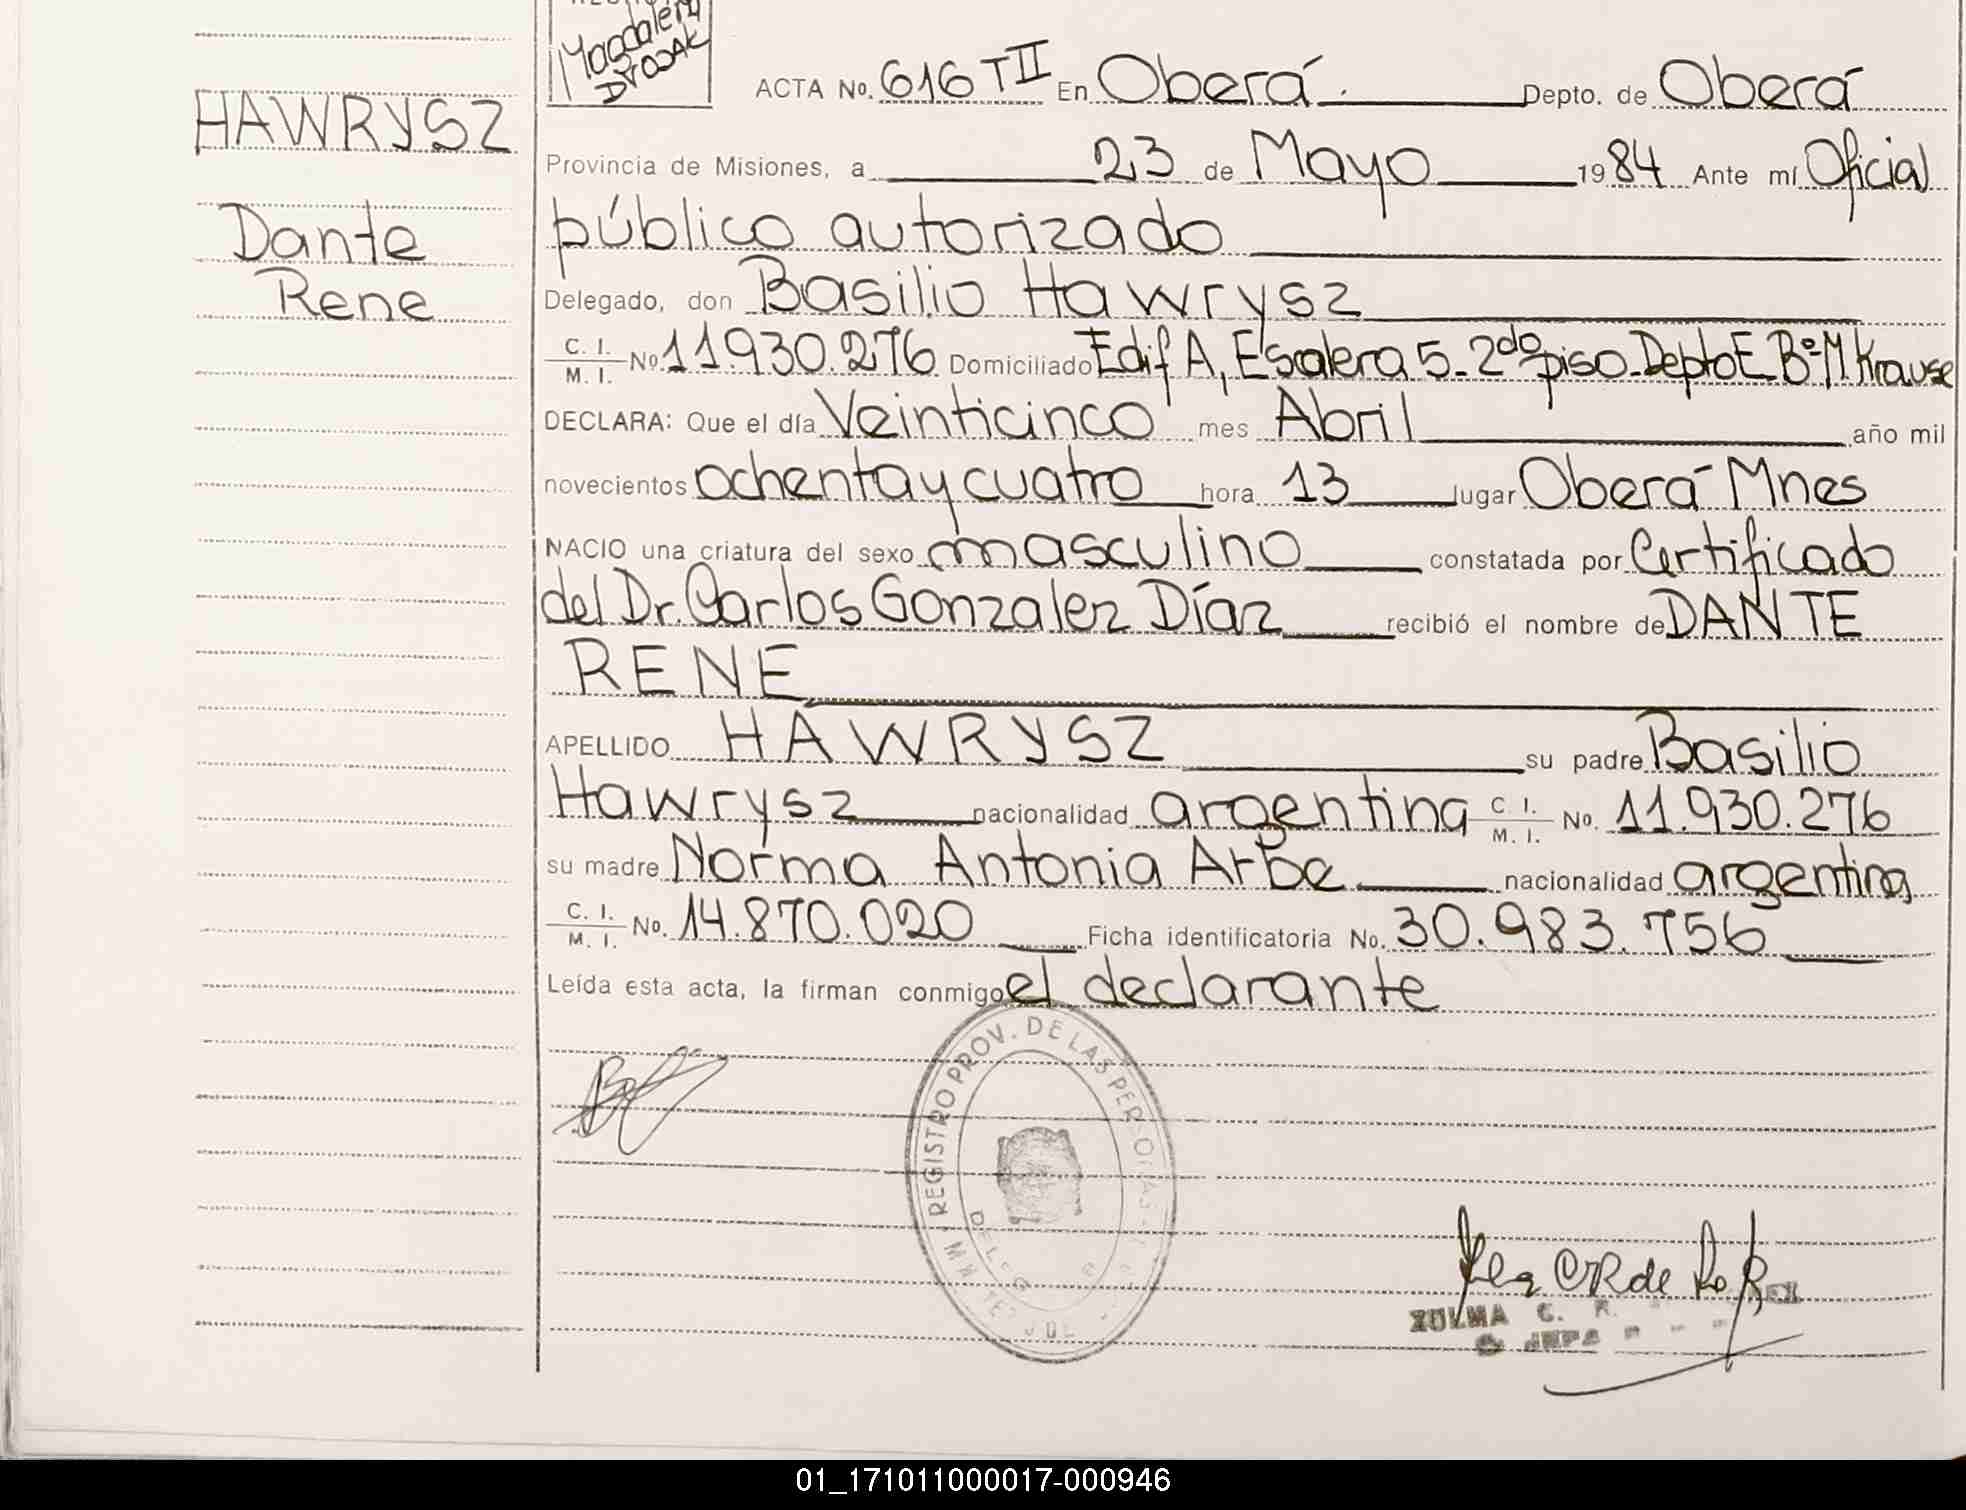 Magdalena
DROZAK
HAWRYSZ
Dante
Rene
ACTA No. 616 T II En Oberá. Depto. de Oberá
Provincia de Misiones, a 23 de Mayo 1984 Ante mí Oficial
público autorizado
Delegado, don Basilio Hawrysz
C. I. / M. I. No. 11.930.276 Domiciliado Edif A, Escalera 5-2do piso-Depto E Bº M. Krause
DECLARA: Que el día Veinticinco mes Abril año mil
novecientos ochenta y cuatro hora 13 lugar Oberá-Mnes
NACIO una criatura del sexo masculino constatada por Certificado
del Dr. Carlos Gonzalez Díaz recibió el nombre de DANTE
RENE
APELLIDO HAWRYSZ su padre Basilio
Hawrysz nacionalidad argentina C. I. / M. I. No. 11.930.276
su madre Norma Antonia Arbe nacionalidad argentina
C. I. / M. I. No. 14.870.020 Ficha identificatoria No. 30.983.756
Leída esta acta, la firman conmigo el declarante
REGISTRO PROV. DE LAS PERSONAS
ZULMA C. R.
01_171011000017-000946